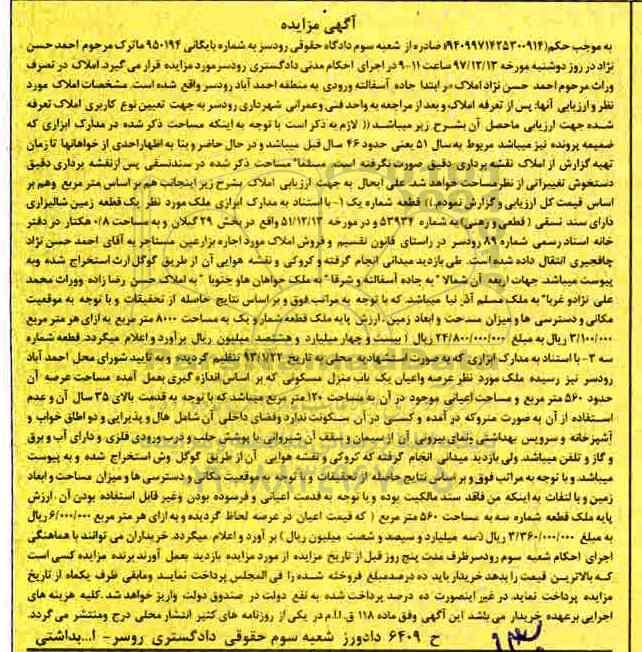 آگهی مزایده
به موجب حکم(۹۴۰۹۹۷۱۴۲۵۳۰۰۹۱۴) صادره از شعبه سوم دادگاه حقوقی رودسر به شماره بایگانی ۹۵۰۱۹۴ ماترک مرحوم احمد حسن
نژاد در روز دوشنبه مورخه ۹۷/۱۲/۱۳ ساعت ۱۱-۹ در اجرای احکام مدنی دادگستری رودسر مورد مزایده قرار می گیرد. املاک در تصرف
وراث مرحوم احمد حسن نژاد املاک در ابتدا جاده آسفالته ورودی به منطقه احمد آباد رودسر واقع شده است. مشخصات املاک مورد
نظر و ارزیابی آنها: پس از تعرفه املاک و بعد از مراجعه به واحد فنی و عمرانی شهرداری رودسر به جهت تعیین نوع کاربری املاک تعرفه
شده جهت ارزیابی ماحصل آن بشرح زیر میباشد (( لازم به ذکر است با توجه به اینکه مساحت ذکر شده در مدارک ابزاری که
ضمیمه پرونده نیز میباشد مربوط به سال ۵۱ یعنی حدود ۴۶ سال قبل میباشد و در حال حاضر و بنا به اظهار احدی از خواهانها تا زمان
تهیه گزارش از املاک نقشه برداری دقیق صورت نگرفته است. مسلما" مساحت ذکر شده در سند نسقی پس از نقشه برداری دقیق
دستخوش تغییراتی از نظر مساحت خواهد شد. علی ایحال به جهت ارزیابی املاک بشرح زیر اینجانب هم بر اساس متر مربع وهم بر
اساس قیمت کل ارزیابی و گزارش نمودم.)) قطعه شماره یک ۱- با استناد به مدارک ابرازی ملک مورد نظر یک قطعه زمین شالیزاری
دارای سند نسقی ( قطعی و رهنی) به شماره ۵۳۹۳۴ و در مورخه ۵۱/۱۲/۱۳ واقع در بخش ۲۹ گیلان و به مساحت ۰/۸ هکتار در دفتر
خانه اسناد رسمی شماره ۸۹ رودسر در راستای قانون تقسیم و فروش املاک مورد اجاره بزارعین مستاجر به آقای احمد حسن نژاد
چافجیری انتقال داده شده است. طی بازدید میدانی انجام گرفته و کروکی و نقشه هوایی آن از طریق گوگل ارث استخراج شده و به
پیوست میباشد. جهات اربعه آن شمالا" به جاده آسفالته و شرقا" به ملک خواهان هاو جنوبا" به املاک حسن رضا زاده ووراث محمد
علی نژادو غربا" به ملک مسلم آذر نیا میباشد. که با توجه به مراتب فوق و بر اساس نتایج حاصله از تحقیقات و با توجه به موقعیت
مکانی و دسترسی ها و میزان مساحت و ابعاد زمین . ارزش پایه ملک قطعه شماره یک به مساحت ۸۰۰۰ متر مربع به ازای هر متر مربع
۳/۱۰۰/۰۰۰ ریال به مبلغ ۲۴/۸۰۰/۰۰۰/۰۰۰ ریال ( بیست و چهار میلیارد و هشتصد میلیون ریال برآورد و اعلام میگردد. قطعه شماره
سه ۳- با استناد به مدارک ابزاری که به صورت استشهادیه محلی به تاریخ ۹۳/۱/۲۲ تنظیم گردیده و به تایید شورای محل احمد آباد
رودسر نیز رسیده ملک مورد نظر عرصه واعیان یک باب منزل مسکونی که بر اساس اندازه گیری بعمل آمده مساحت عرصه آن
حدود ۵۶۰ متر مربع و مساحت اعیانی موجود در آن به مساحت ۱۲۰متر مربع میباشد که با توجه به قدمت بالای ۳۵ سال آن و عدم
استفاده از آن به صورت متروکه در آمده و کسی در آن سکونت ندارد وفضای داخلی آن شامل هال و پذیرایی و دو اطاق خواب و
آشپزخانه و سرویس بهداشتی ونمای بیرونی آن از سیمان و سقف آن شیروانی با پوشش حلب و درب ورودی فلزی و دارای آب و برق
و گاز و تلفن میباشد. ولی بازدید میدانی انجام گرفته که کروکی و نقشه هوایی آن از طریق گوگل وش استخراج شده و به پیوست
میباشد. و با توجه به مراتب فوق و بر اساس نتایج حاصله از تحقیقات و با توجه به موقعیت مکانی و دسترسی ها و میزان مساحت و ابعاد
زمین و با لتفات به اینکه من فاقد سند مالکیت بوده و با توجه به قدمت اعیانی و فرسوده بودن وغیر قابل استفاده بودن آن . ارزش
پایه ملک قطعه شماره سه به مساحت ۵۶۰ متر مربع ( که قیمت اعیان در عرصه لحاظ گردیده و به ازای هر متر مربع ۶/۰۰۰/۰۰۰ ریال
به مبلغ ۳/۳۶۰/۰۰۰/۰۰۰ ریال (سه میلیارد و سیصد و شصت میلیون ریال) بر آورد و اعلام میگردد. خریداران می توانند با هماهنگی
اجرای احکام شعبه سوم رودسر ظرف مدت پنج روز قبل از تاریخ مزایده از مورد مزایده بازدید بعمل آورند برنده مزایده کسی است
که بالاترین قیمت را بدهد خریدار باید ده درصد مبلغ فروخته شده را فی المجلس پرداخت نمایند ومابقی ظرف یکماه از تاریخ
مزایده پرداخت نماید در غیر اینصورت ده درصد پرداخت شده به نفع دولت در صندوق دولت واریز خواهد شد. کلیه هزینه های
اجرایی برعهده خریدار می باشد این آگهی وفق ماده ۱۱۸ ق.ا.ا.م در یکی از روزنامه های کثیر انتشار محلی درج ومنتشر می گردد.
ح ۶۴۰۹ دادورز شعبه سوم حقوقی دادگستری روسر- ا...بداشتی